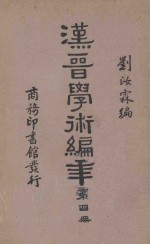 劉汝霖編
漢晉學術編年
第四册
商務印書館發行